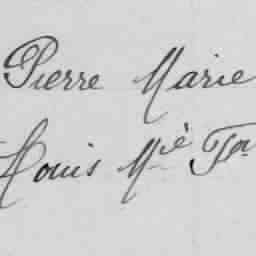 Pierre Marie
Louis Mie